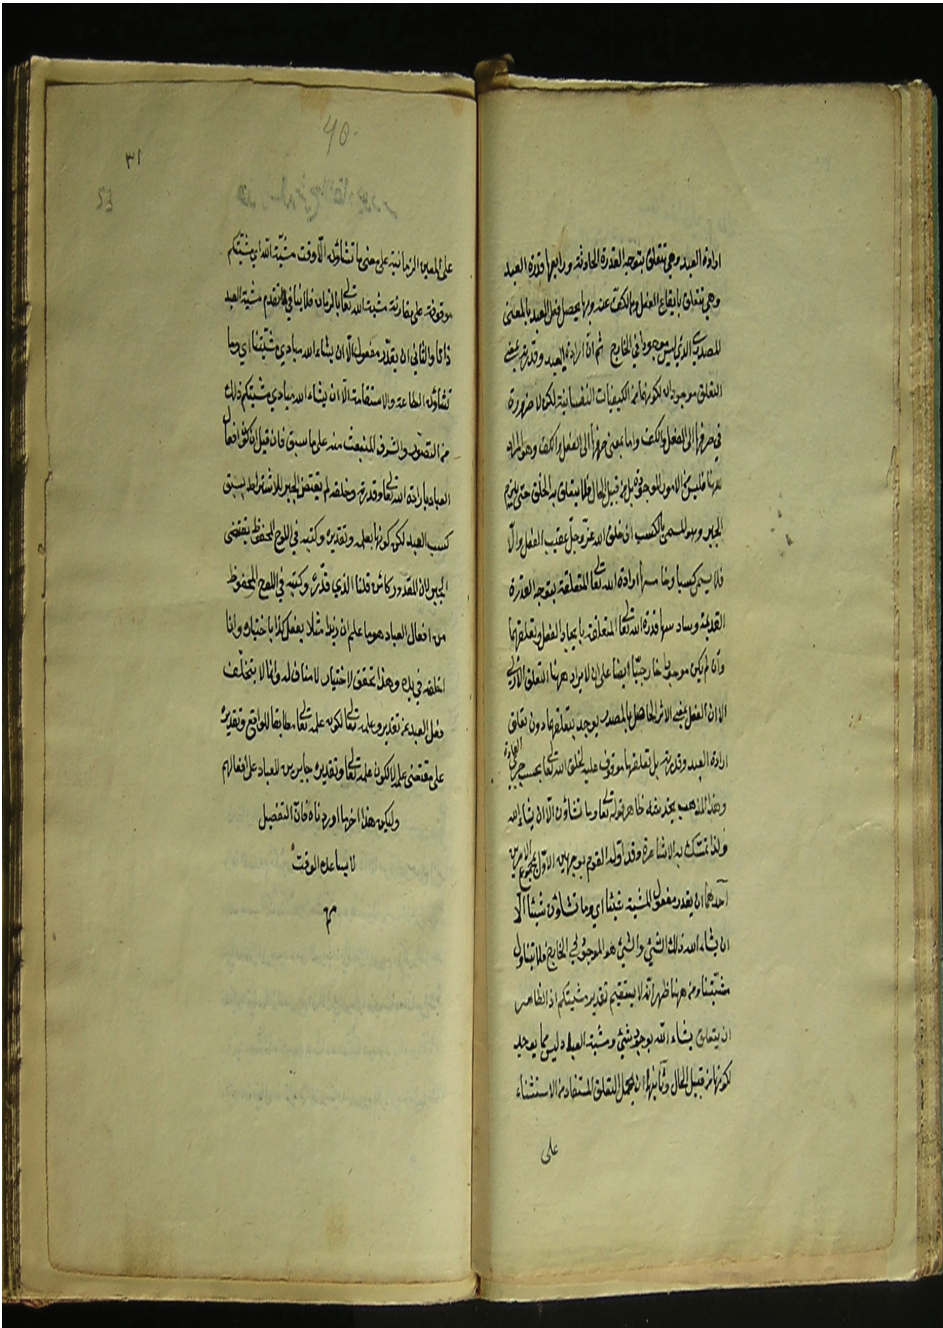 ارادة العبد وهي تتعلق بتوجه القدرة الحادثة ورابعها قدرة العبد
وهي تتعلق بايقاع الفعل وبالكف عنه وبها يحصل فعل العبد بالمعنى
المصدري الذي ليس موجودا في الخارج ثم ان ارادة العبد وقدرته بمعنى
التعلق موجودة لكونها من الكيفيات النفسانية لكن لا ضرورة
في صرفها الى الفعل والكف واما بمعنى صرفها الى الفعل والكف وهو المراد
ههنا فليس من الامور الموجودة بل من قبيل الحال فلا يتعلق به الخلق حتى يلزم
الجبر وهو المسمى بالكسب ان خلق الله عز وجل عقيب الفعل والا
فلا يسمى كسبا وخامسها ارادة الله تعالى المتعلقة بتوجه القدرة
القديمة وسادسها قدرة الله تعالى المتعلقة بايجاد الفعل وتعلقها
وان لم يكن موجودا خارجيا ايضا على ان لا يراد ههنا التعلق الازلي
الا ان الفعل بمعنى الاثر الحاصل بالمصدر يوجد بتعلقها دون تعلق
ارادة العبد وقدرته بل تعلقها موقوف عليه لخلق الله تعالى بحسب جري العادة
وهذا المذهب يخدشه ظاهر قوله تعالى وما تشاؤن الا ان يشاء الله
ولذا تمسك به الاشاعرة وقد اوله القوم بوجهين الاول مجموع الامرين
احدهما ان يقدر مفعول المشية شيئا اي وما تشاؤن شيئا الا
ان يشاء الله ذلك الشئ والشئ هو الموجود في الخارج فلا يتناول
مشيتنا ومن ههنا ظهر انه لا يستقيم تقدير مشيتكم اذ الظاهر
ان يتعلق يشاء الله بوجود شئ ومشية العبد ليس مما يوجد
لكونها من قبيل الحال وثانيهما ان يحمل التعلق المستفاد من الاستثناء
على
٣١
على المعية الزمانية على معنى ما تشاؤنه الا وقت مشية الله اي مشيتكم
موقوفة على مقارنة مشية الله تعالى بالزمان فلا ينافي التقدم مشية العبد
ذاتا والثاني ان يقدر مفعول الا ان يشاء الله مبادي مشيتنا اي وما
تشاؤنه الطاعة والاستقامة الا ان يشاء الله مبادي مشيتكم ذلك
من التصور والشوق المنبعث منه على ما سبق فان قيل ان كون افعال
العباد بارادة الله تعالى وقدرته وخلقه لم يقتض الجبر للاشتراط بسبق
كسب العبد لكن كونها بعلمه وتقديره وكتبه في اللوح المحفوظ يقتضي
الجبر لان المقدور كائن قلنا الذي قدره وكتبه في اللوح المحفوظ
من افعال العباد هو ما علم ان زيدا مثلا يفعل كذا باختياره وانا
اخلقه في يده وهذا تحقق لاختياره لا مناف له وانما لا يتخلف
فعل العبد عن تقديره وعلمه تعالى لكونه علمه تعالى مطابقا للواقع وتقديره
على مقتضى علمه لا لكون علمه تعالى وتقديره جابرين للعباد على افعالهم
وليكن هذا اخر ما اوردناه فان التفصيل
لا يساعده الوقت
تم